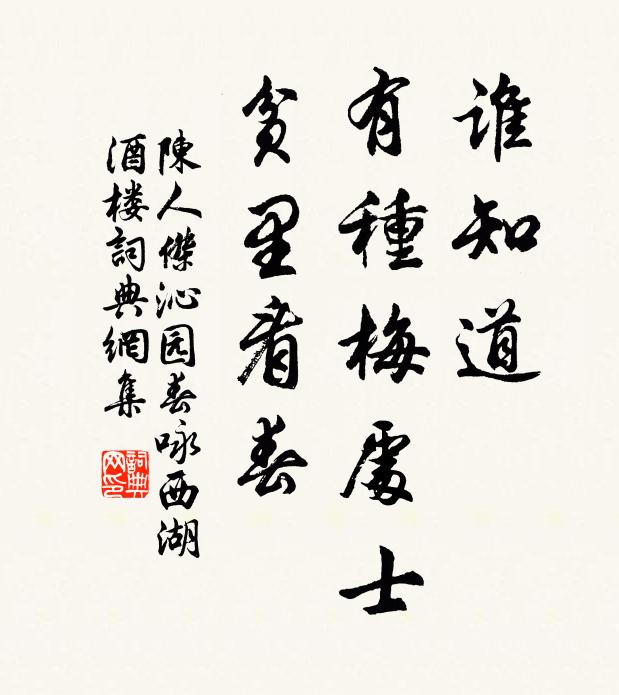 誰知道
有種梅處士
貧里看春
陳人傑沁园春咏西湖
酒楼詞典網集
詞典网印